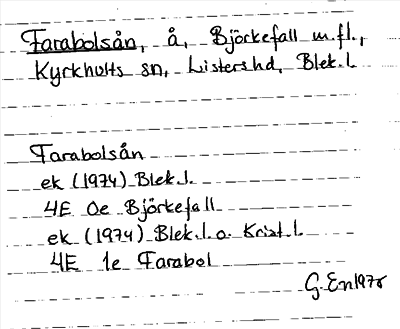 Farabolsån, å, Björkefall m.fl.,
Kyrkhults sn, Listers hd, Blek. l.
Farabolsån
ek (1974) Blek. l.
4E 0e Björkefall
ek (1974) Blek. l. o. Krist. l.
4E 1e Farabol
G. En